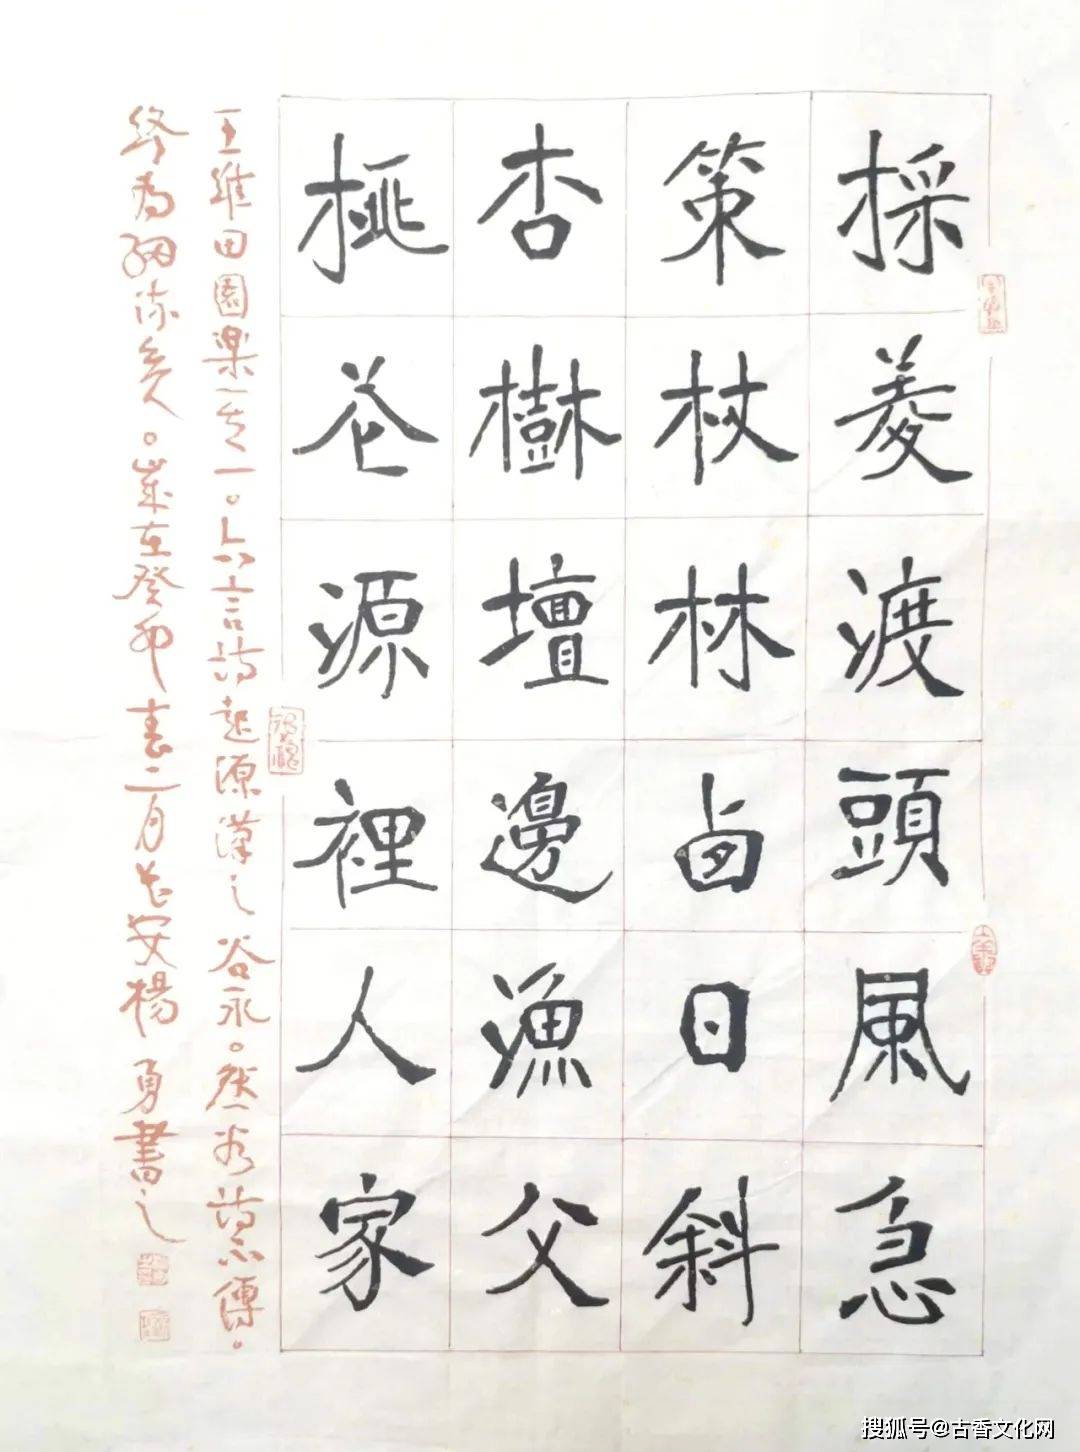 採菱渡頭風急
策杖林西日斜
杏樹壇邊漁父
桃花源裡人家
王維田園樂之一。六言詩起源漢之谷永。然詩不傳。
終為細流矣。歲在癸卯春二月長安楊勇書之
搜狐号@古香文化网